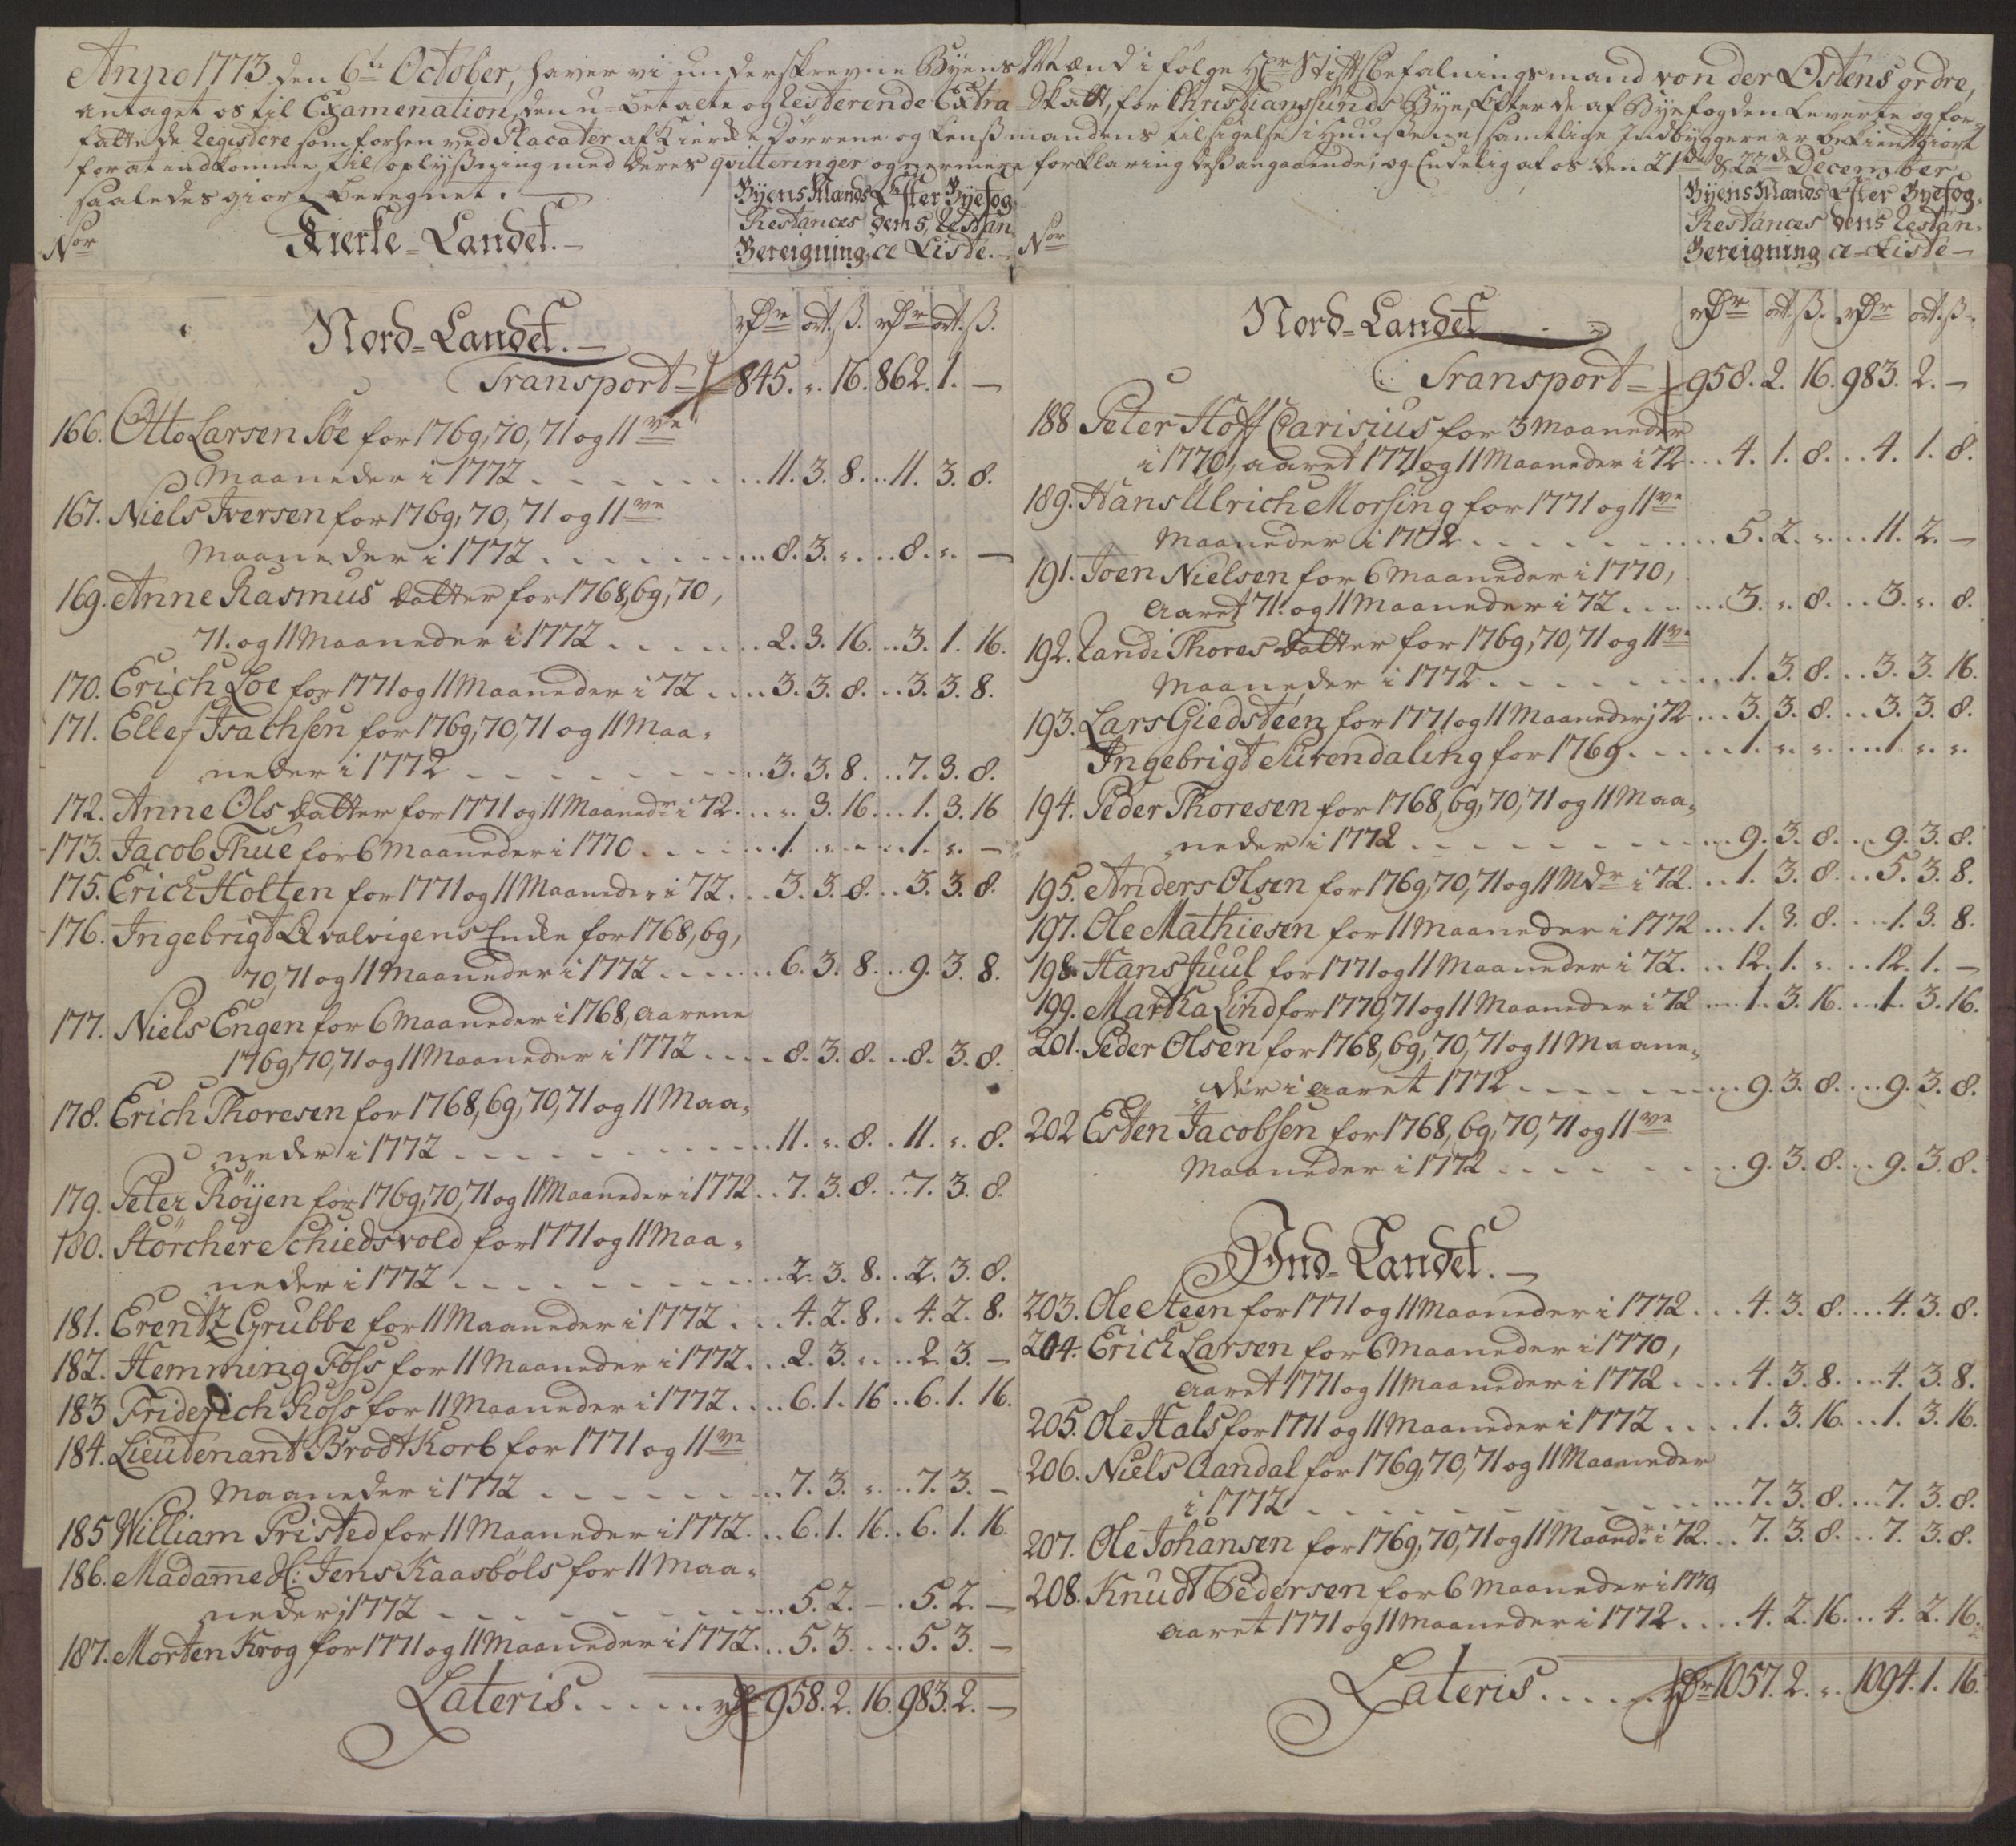 Anno 1773 den 6te October, haver vi underskrevne Byens Mænd i følge Hr Stiftsbefalningsmand von der Østens ordre,
antaget os til Examenation, den u-betalte og Resterende Extra-Skatt, for Christiansunds Bye, Efter de af Byefogden Leverte og for-
fattede Registere som forhen ved Placater af Kierke Dørrene og Lensmandens tilsigelse i Huusene samtlige Indbyggere er bekientgiort
for at indkomme til oplysning med deres qvitteringer og nermere forklaring des angaaende; og Endelig af os den 21de & 22de December
saaledes giort Beregnet.
Nor
Kierke-Landet.
Byens Mands Restances Bereigning
Efter Byefogdens Restance Liste.
Nor
Byens Mands Restances Bereigning
Efter Byefogdens Restance-Liste
Nord-Landet.
rdr ort. ß. rdr ort. ß.
Transport 845. „. 16. 862. 1. —
166. Otto Larsen Söe for 1769, 70, 71 og 11ve
Maaneder i 1772 11. 3. 8. 11. 3. 8.
167. Niels Iversen for 1769, 70, 71 og 11ve
Maaneder i 1772 8. 3. „. 8. „. —
169. Anne Rasmus datter for 1768, 69, 70,
71. og 11 Maaneder i 1772 2. 3. 16. 3. 1. 16.
170. Erich Loe for 1771 og 11 Maaneder i 72 3. 3. 8. 3. 3. 8.
171. Ellef Isachsen for 1769, 70, 71 og 11 Maa-
neder i 1772 3. 3. 8. 7. 3. 8.
172. Anne Ols datter for 1771 og 11 Maanedr i 72. „. 3. 16. 1. 3. 16
173. Jacob Thue for 6 Maaneder i 1770 1. „. — 1. „. —
175. Erich Holten for 1771 og 11 Maaneder i 72. 3. 3. 8. 3. 3. 8.
176. Ingebrigt Qvalvigens Enke for 1768, 69,
70, 71 og 11 Maaneder i 1772 6. 3. 8. 9. 3. 8.
177. Niels Engen for 6 Maaneder i 1768, Aarene
1769, 70, 71 og 11 Maaneder i 1772 8. 3. 8. 8. 3. 8.
178. Erich Thoresen for 1768, 69, 70, 71 og 11 Maa-
neder i 1772 11. „. 8. 11. „. 8.
179. Peter Röyen for 1769, 70, 71 og 11 Maaneder i 1772 7. 3. 8. 7. 3. 8.
180. Störcher Schiedsvold for 1771 og 11 Maa-
neder i 1772 2. 3. 8. 2. 3. 8.
181. Erentz Grubbe for 11 Maaneder i 1772 4. 2. 8. 4. 2. 8.
182. Hemming Foss for 11 Maaneder i 1772. 2. 3. „. 2. 3. —
183 Friderich Ross for 11 Maaneder i 1772. 6. 1. 16 6. 1. 16.
184. Lieutenant Brodtkorb for 1771 og 11ve
Maaneder i 1772 7. 3. „. 7. 3. —
185 William Pristed for 11 Maaneder i 1772. 6. 1. 16. 6. 1. 16.
186. Madame Sl: Jens Kaasböls for 11 Maa-
neder i 1772 5. 2. — 5. 2. —
187. Morten Krog for 1771 og 11 Maaneder i 1772. 5. 3. 5. 3. —
Lateris rdr 958. 2. 16. 983. 2. —
Nord-Landet
rdr ort. ß. rdr ort. ß.
Transport 958. 2. 16. 983. 2. —
188 Peter Hoff Parisius for 3 Maaneder
i 1770, aaret 1771 og 11 Maaneder i 72 4. 1. 8. 4. 1. 8.
189. Hans Ulrich Morsing for 1771 og 11ve
Maaneder i 1772 5. 2. „. 11. 2. —
191. Joen Nielsen for 6 Maaneder i 1770,
Aaret 71. og 11 Maaneder i 72 3. „. 8. 3. „. 8.
192. Randi Thores datter for 1769, 70, 71 og 11ve
Maaneder i 1772 1. 3. 8. 3. 3. 16.
193. Lars Giedsteen for 1771 og 11 Maaneder i 72 3. 3. 8. 3. 3. 8.
Ingebrigt Surendaling for 1769 1. „. „. 1. „. „.
194. Peder Thoresen for 1768, 69, 70, 71 og 11 Maa-
neder i 1772 9. 3. 8. 9. 3. 8.
195. Anders Olsen for 1769, 70, 71 og 11 Mdr i 72. 1. 3. 8. 5. 3. 8.
197. Ole Mathiesen for 11 Maaneder i 1772 1. 3. 8. 1. 3. 8.
198. Hans Juul for 1771 og 11 Maaneder i 72. 12. 1. „. 12. 1. —
199. Martha Lind for 1770, 71 og 11 Maaneder i 72 1. 3. 16. 1. 3. 16.
201. Peder Olsen for 1768, 69, 70, 71 og 11 Maane-
der i Aaret 1772 9. 3. 8. 9. 3. 8.
202 Esten Jacobsen for 1768, 69, 70, 71 og 11ve
Maaneder i 1772 9. 3. 8. 9. 3. 8.
Ind-Landet.
203. Ole Steen for 1771 og 11 Maaneder i 1772 4. 3. 8. 4. 3. 8.
204. Erich Larsen for 6 Maaneder i 1770,
Aaret 1771 og 11 Maaneder i 1772 4. 3. 8. 4. 3. 8.
205. Ole Hals for 1771 og 11 Maaneder i 1772 1. 3. 16. 1. 3. 16.
206. Niels Aandal for 1769, 70, 71 og 11 Maaneder
i 1772 7. 3. 8. 7. 3. 8.
207. Ole Johansen for 1769, 70, 71 og 11 Maandr i 72. 7. 3. 8. 7. 3. 8.
208. Knudt Pedersen for 6 Maaneder i 1770,
Aaret 1771 og 11 Maaneder i 1772 4. 2. 16. 4. 2. 16.
Lateris rdr 1057. 2. „. 1094. 1. 16.